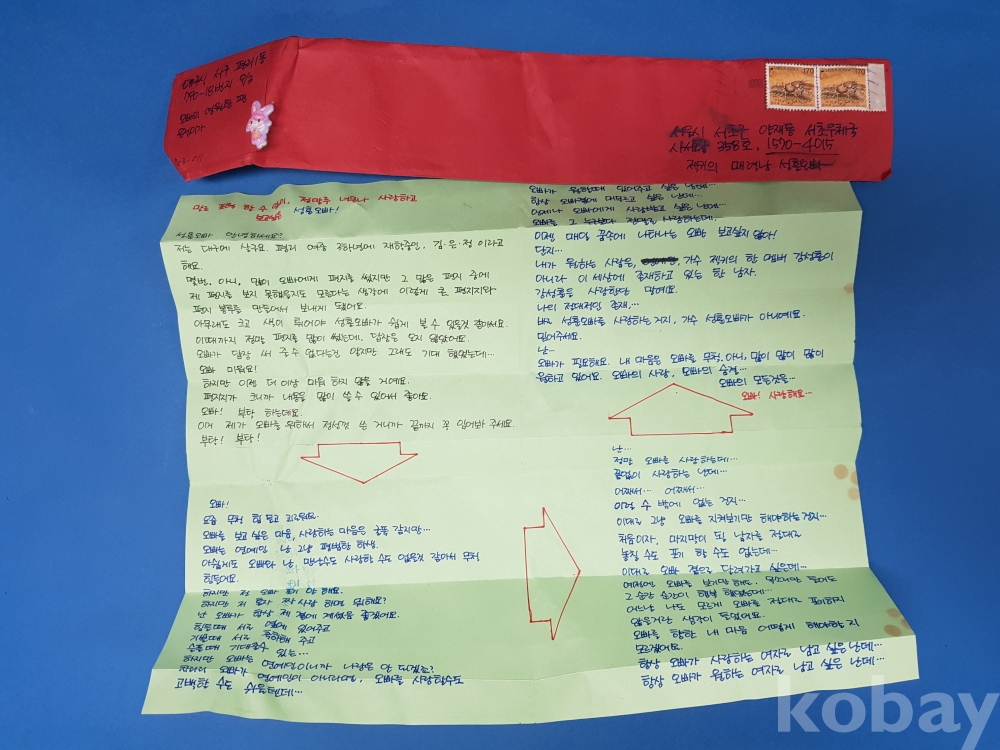 대구시 서구 평리1동
오빠의 영원한 팬
은정이가
170
170
서울시 서초구 양재동 서초우체국
사서함 358호. 1570-4015
젝키의 매력남 성훈오빠
말로 표현 할 수 없이, 정말루 너무나 사랑하고
보고싶은 성훈오빠!
성훈오빠 안녕하세요?
저는 대구에 살구요. 평리 여중 2학년에 재학중인, 김.은.정 이라고
해요.
몇번, 아니, 많이 오빠에게 편지를 썼지만 그 많은 편지 중에
제 편지를 보지 못했을지도 모른다는 생각에 이렇게 큰 편지지와
편지 봉투를 만들어서 보내게 됐어요.
아무래도 크고 색이 튀어야 성훈오빠가 쉽게 볼 수 있을것 같아서요.
이때까지 정말 편지를 많이 썼는데. 답장은 오지 않았어요.
오빠가 답장 써 줄 수 없다는건 알지만 그래도 기대 했었는데…
오빠 미워요!
하지만 이젠 더 이상 미워 하지 않을 거예요.
편지지가 크니까 내용을 많이 쓸 수 있어서 좋아요.
오빠! 부탁 하는데요.
이거 제가 오빠를 위해서 정성껏 쓴 거니까 끝까지 꼭 읽어봐 주세요.
부탁! 부탁!
오빠!
요즘 무척 힘들고 괴로워요.
오빠를 보고 싶은 마음, 사랑하는 마음은 굴뚝 같지만…
오빠는 연예인 난 그냥 평범한 학생.
아쉽게도 오빠와 난, 만날수도 사랑할 수도 없을것 같아서 무척
힘들어요.
하지만 전 오빠 포기 안 해요.
하지만 저 혼자 짝사랑 하면 뭐해요?
난 오빠가 항상 제 곁에 계셨음 좋겠어요.
힘들때 서로 옆에 있어주고
기쁠때 서로 축하해 주고
슬플때 기대줄수 있는…
하지만 오빠는 연예인이니까 나랑은 안 되겠죠?
차라리 오빠가 연예인이 아니라면, 오빠를 사랑할수도
고백할 수도 쉬울텐데…
오빠가 원할때 있어주고 싶은 난데…
항상 오빠곁에 머무르고 싶은 난데…
언제나 오빠에게 사랑받고 싶은 난데…
오빠를 그 누구보다 정말로 사랑하는데.
이젠 매일 꿈속에 나타나는 오빠 보고싶지 않아!
단지…
내가 원하는 사람은, 가수 젝키의 한 멤버 강성훈이
아니라 이 세상에 존재하고 있는 한 남자.
강성훈을 사랑한단 말예요.
나의 절대적인 존재…
바로 성훈오빠를 사랑하는거지, 가수 성훈오빠가 아니예요.
믿어주세요.
난…
오빠가 필요해요. 내 마음은 오빠를 무척, 아니, 많이 많이 많이
원하고 있어요. 오빠의 사랑, 오빠의 숨결…
오빠의 모든것을…
오빠! 사랑해요…
난…
정말 오빠를 사랑하는데…
끝없이 사랑하는 난데…
어째서… 어째서…
이럴 수 밖에 없는 건지…
이대로 그냥 오빠를 지켜보기만 해야하는 건지…
처음이자, 마지막이 될 남자를 절대로
놓칠 수도 포기 할 수도 없는데…
이대로 오빠 곁으로 달려가고 싶은데…
예전엔 오빠를 보기만해도, 목소리만 들어도
그 순간 순간이 행복 했었는데…
어느날 나도 모르게 오빠를 절대로 포기하지
않을거란 생각이 들었어요.
오빠를 향한 내 마음 어떻게 해야할 지
모르겠어요.
항상 오빠가 사랑하는 여자로 남고 싶은 난데…
항상 오빠가 원하는 여자로 남고 싶은 난데…
kobay